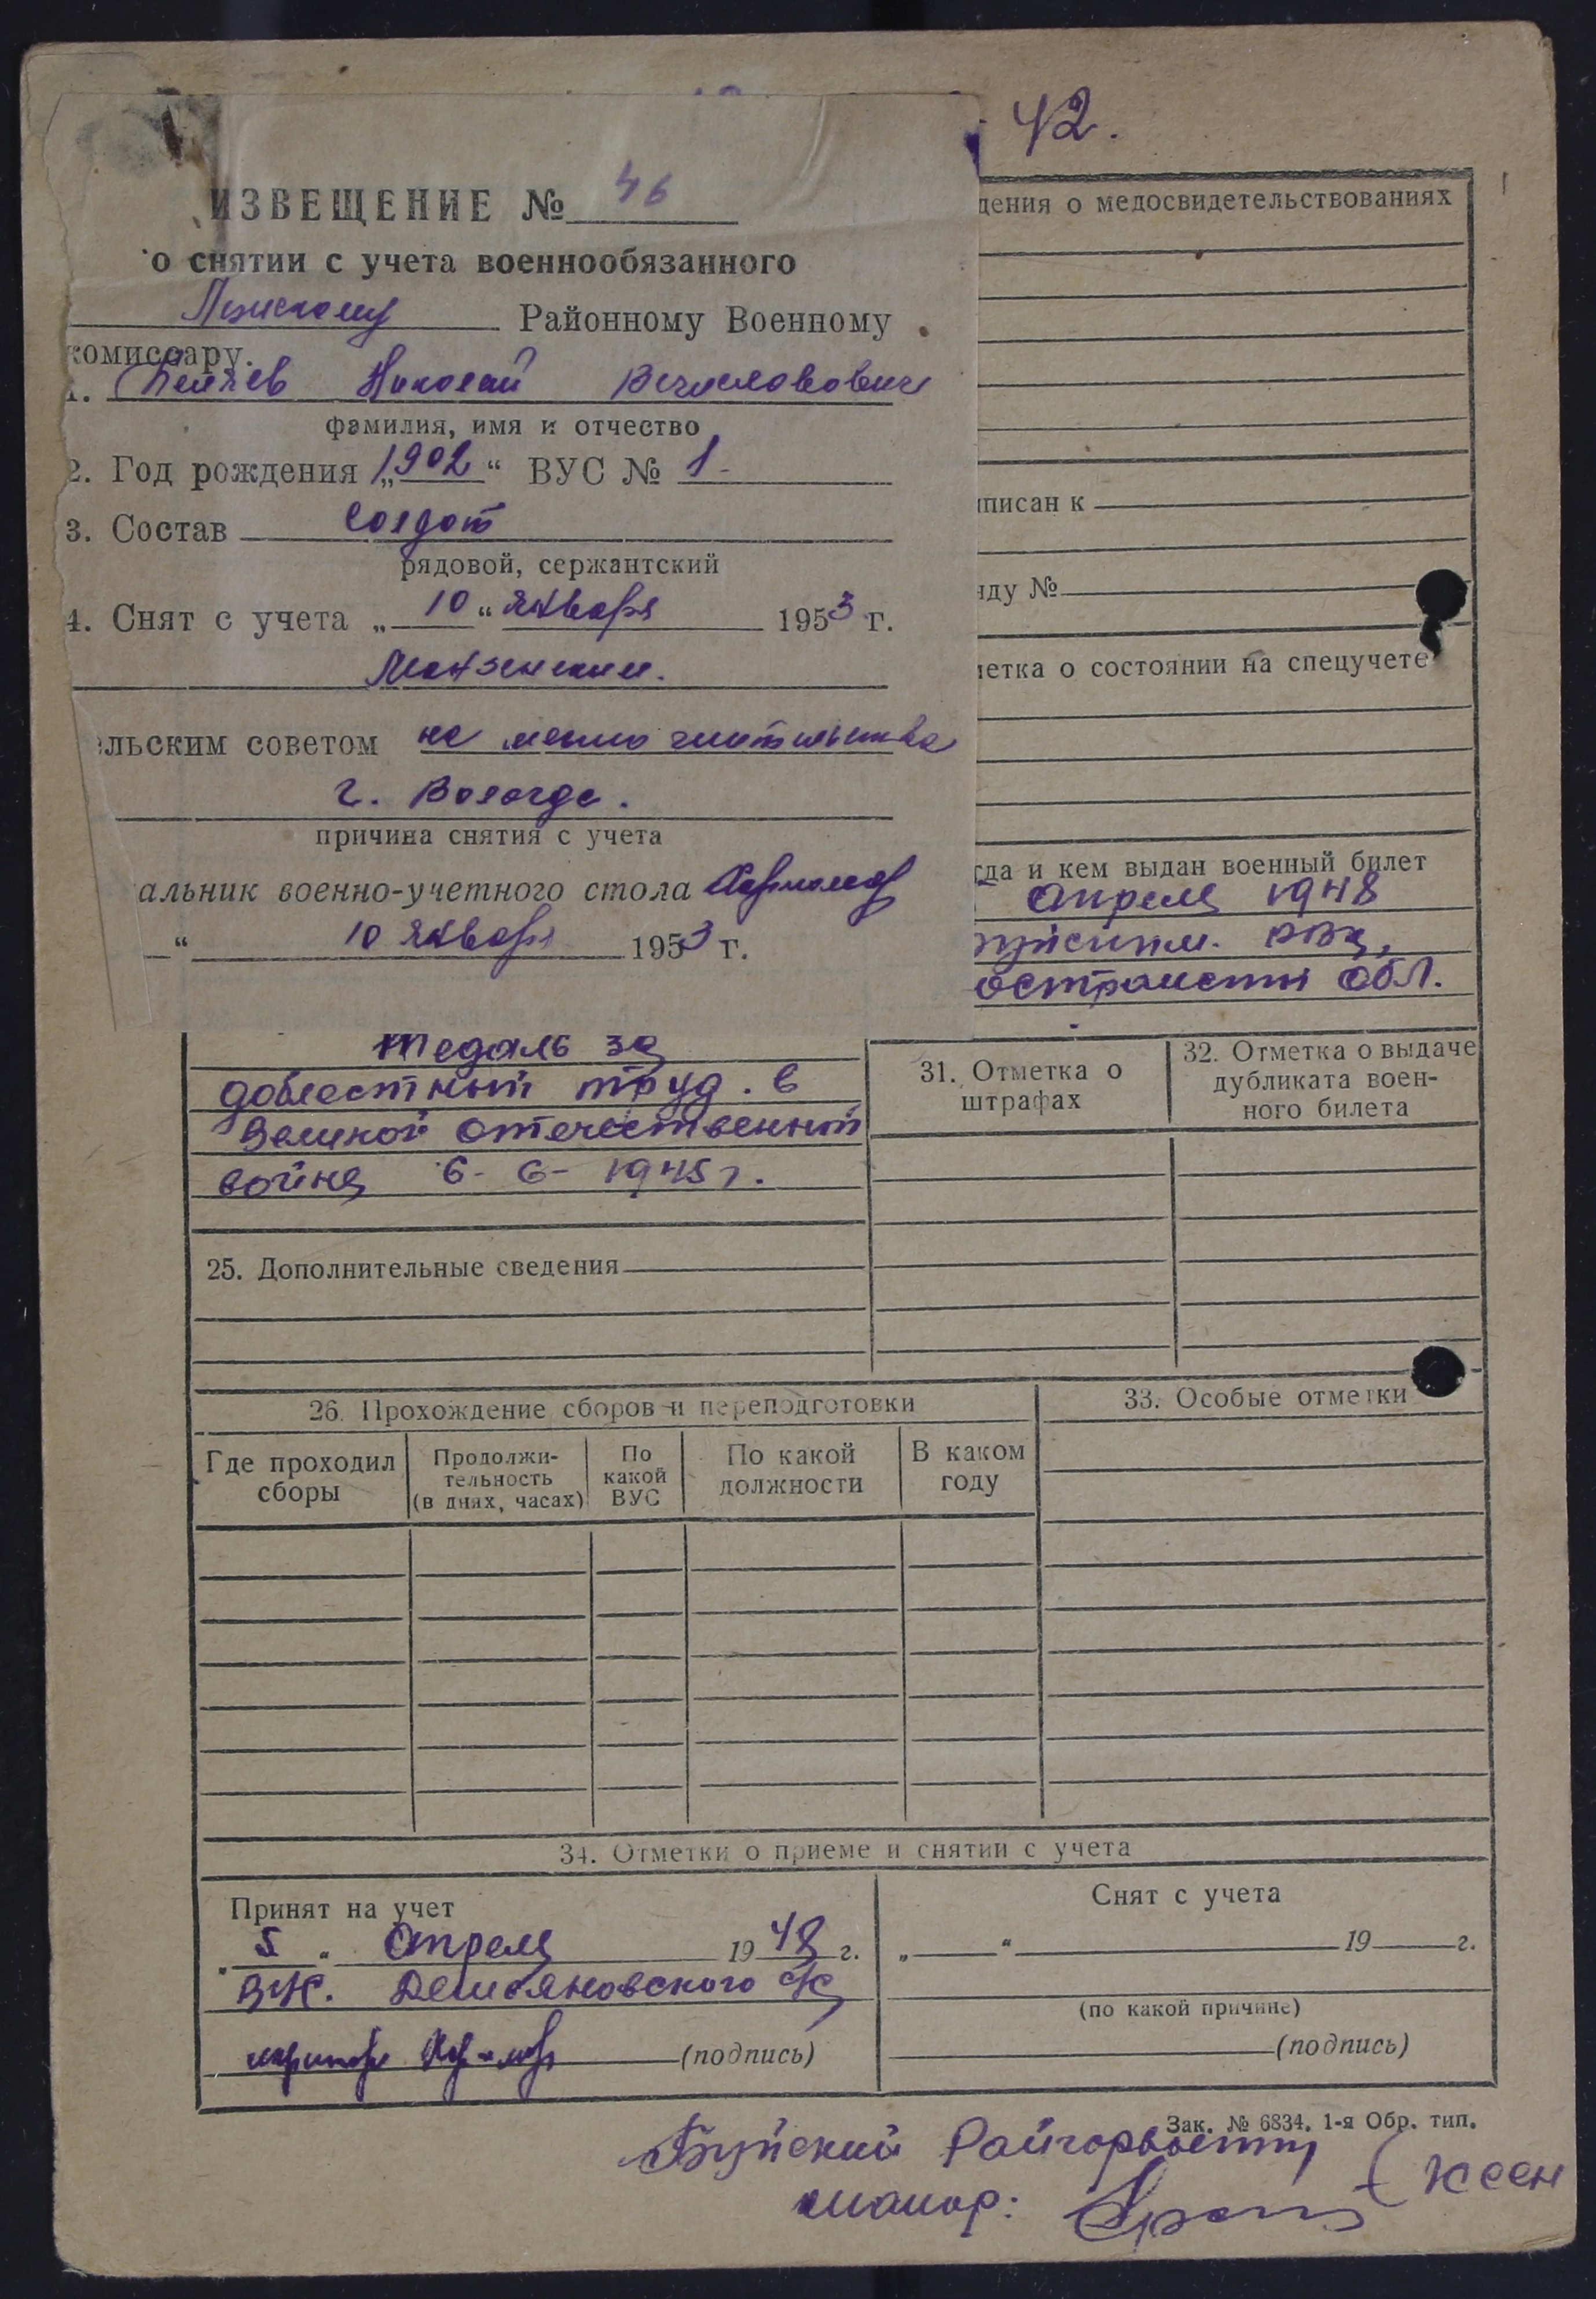 42.
ИЗВЕЩЕНИЕ № 46
о снятии с учета военнообязанного
Районному Военному
комиссару.
1. Беляев Николай Вечеславович
фамилия, имя и отчество
2. Год рождения „1902“ ВУС № 1-
3. Состав солдат
рядовой, сержантский
4. Снят с учета „10“ января 1953 г.
ельским советом на место жительства
г. Вологда.
причина снятия с учета
альник военно-учетного стола
“ 10 января 1953 г.
дения о медосвидетельствованиях
писан к
нду №
метка о состоянии на спецучете
гда и кем выдан военный билет
апреля 1948
уйским. РВК,
остромской обл.
медаль за
доблестный труд. в
Великой отечественной
война 6-6-1945 г.
25. Дополнительные сведения
31. Отметка о
штрафах
32. Отметка о выдаче
дубликата воен-
ного билета
26. Прохождение сборов и переподготовки
Где проходил
сборы
Продолжи-
тельность
(в днях, часах)
По
какой
ВУС
По какой
должности
В каком
году
33. Особые отметки
34. Отметки о приеме и снятии с учета
Принят на учет
„5“ Апреля 1948 г.
Демьяновского с/с
(подпись)
Снят с учета
„ “ 19 г.
(по какой причине)
(подпись)
Зак. № 6834. 1-я Обр. тип.
Буйский
майор: